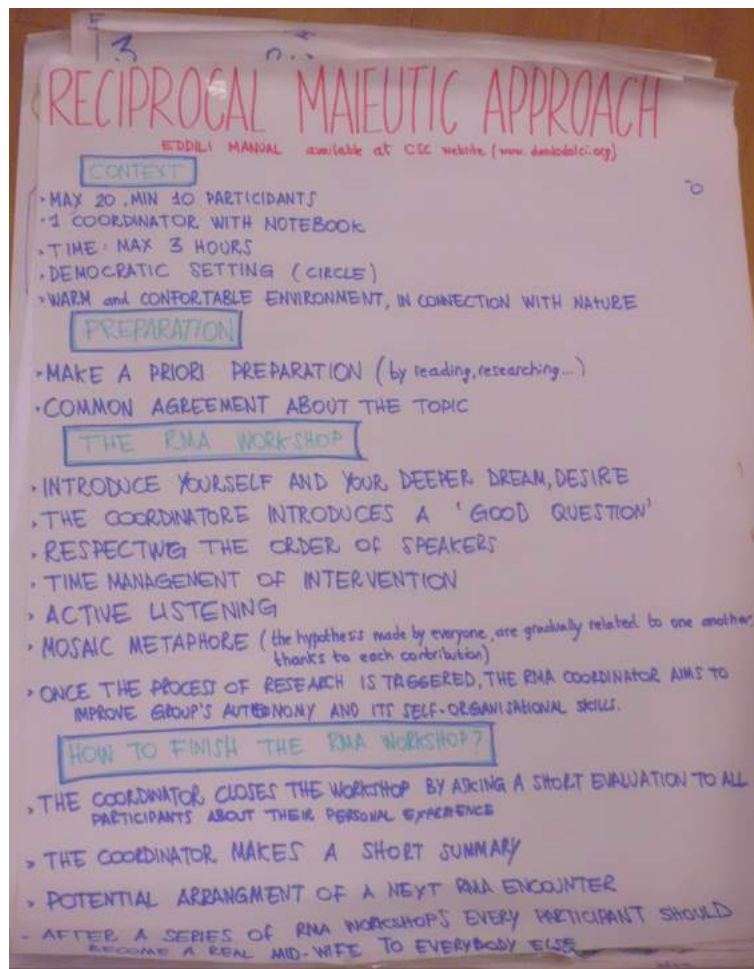 3
RECIPROCAL MAIEUTIC APPROACH
EDDILI MANUAL available at CSC website (www.danilodolci.org)
CONTEXT
• MAX 20. MIN 10 PARTICIPANTS
• 1 COORDINATOR WITH NOTEBOOK
• TIME: MAX 3 HOURS
• DEMOCRATIC SETTING (CIRCLE)
• WARM and CONFORTABLE ENVIRONMENT, IN CONNECTION WITH NATURE
PREPARATION
• MAKE A PRIORI PREPARATION (by reading, researching...)
• COMMON AGREEMENT ABOUT THE TOPIC
THE RMA WORKSHOP
• INTRODUCE YOURSELF AND YOUR DEEPER DREAM, DESIRE
• THE COORDINATORE INTRODUCES A 'GOOD QUESTION'
• RESPECTING THE ORDER OF SPEAKERS
• TIME MANAGEMENT OF INTERVENTION
• ACTIVE LISTENING
• MOSAIC METAPHORE (the hypothesis made by everyone, are gradually related to one another,
thanks to each contribution)
• ONCE THE PROCESS OF RESEARCH IS TRIGGERED, THE RMA COORDINATOR AIMS TO
IMPROVE GROUP'S AUTONOMY AND ITS SELF-ORGANISATIONAL SKILLS.
HOW TO FINISH THE RMA WORKSHOP?
• THE COORDINATOR CLOSES THE WORKSHOP BY ASKING A SHORT EVALUATION TO ALL
PARTICIPANTS ABOUT THEIR PERSONAL EXPERIENCE
• THE COORDINATOR MAKES A SHORT SUMMARY
• POTENTIAL ARRANGMENT OF A NEXT RMA ENCOUNTER
- AFTER A SERIES OF RMA WORKSHOPS EVERY PARTICIPANT SHOULD
BECOME A REAL MID-WIFE TO EVERYBODY ELSE